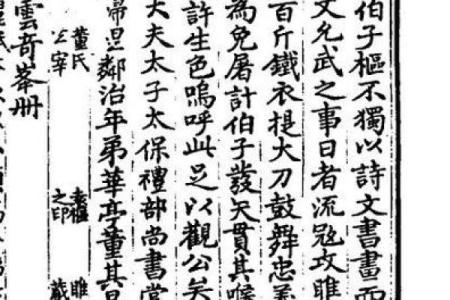 伯子樞不獨以詩文書畫而
文允武之事日者流寇攻睢
百斤鐵衣提大刀鼓舞忠義
為免屠計伯子發矢貫其喉
許生色嗚呼此足以觀公矣
大夫太子太保禮部尚書掌
帚是鄰治年弟華亭董其昌
董氏 袁樞 睢
宰 之印 藏
雲奇峯册